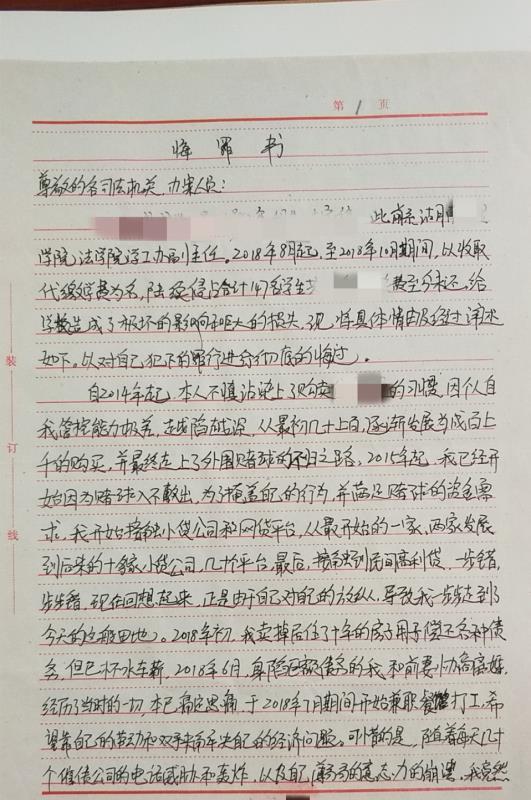 第 1 页
悔 罪 书
尊敬的各司法机关、办案人员：
此前系沽月
学院法学院学工办副主任。2018年8月起，至2018年10月期间，以收取
代缴学费为名，陆续侵占合计147名学生 费至今未还，给
学校造成了极坏的影响和巨大的损失，现将具体情由及经过陈述
如下。以对自己犯下的罪行进行彻底的悔过。
自2014年起，本人不慎沾染上了购买 的习惯，因个人自
我管控能力极差，越陷越深，从最初几十上百，逐渐发展成百上
千的购买，并最终走上了外围赌球的不归之路。2015年起，我已经开
始因为赌球入不敷出，为了掩盖自己的行为，并满足赌球的资金需
求。我开始接触小贷公司和网贷平台，从最开始的一家、两家发展
到后来的十多家小贷公司，几十个平台。最后，接触到民间高利贷，一步错，
步步错，现在回想起来，正是由于自己对自己的放纵，导致我一步步走到了
今天的这般田地。2018年初，我卖掉居住了十年的房子用于偿还各种债
务，但已杯水车薪，2018年6月，身陷巨额债务的我，和前妻协商离婚，
经历了当时的一切，本已痛定思痛，于2018年7月期间开始兼职 打工，希
望靠自己的劳动和双手来解决自己的经济问题。可惜的是，随着每天几十
个催债公司的电话威胁和轰炸，以及自己 的意志力的崩溃，我竟然
装
订
线